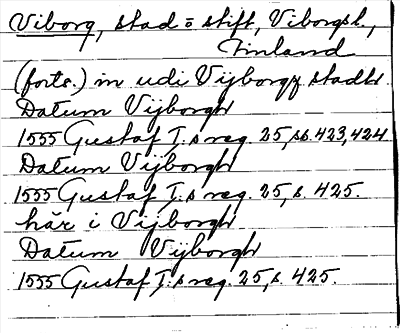 Viborg, stad o stift, Viborgsl.,
Finland
(forts.) in udi Vijborgz stadh
Datum Vijborgh
1555 Gustaf I:s reg. 25, ss. 423, 424
Datum Vijborgh
1555 Gustaf I:s reg. 25, s. 425.
här i Vijborgh
Datum Vijborgh
1555 Gustaf I:s reg. 25, s. 425.